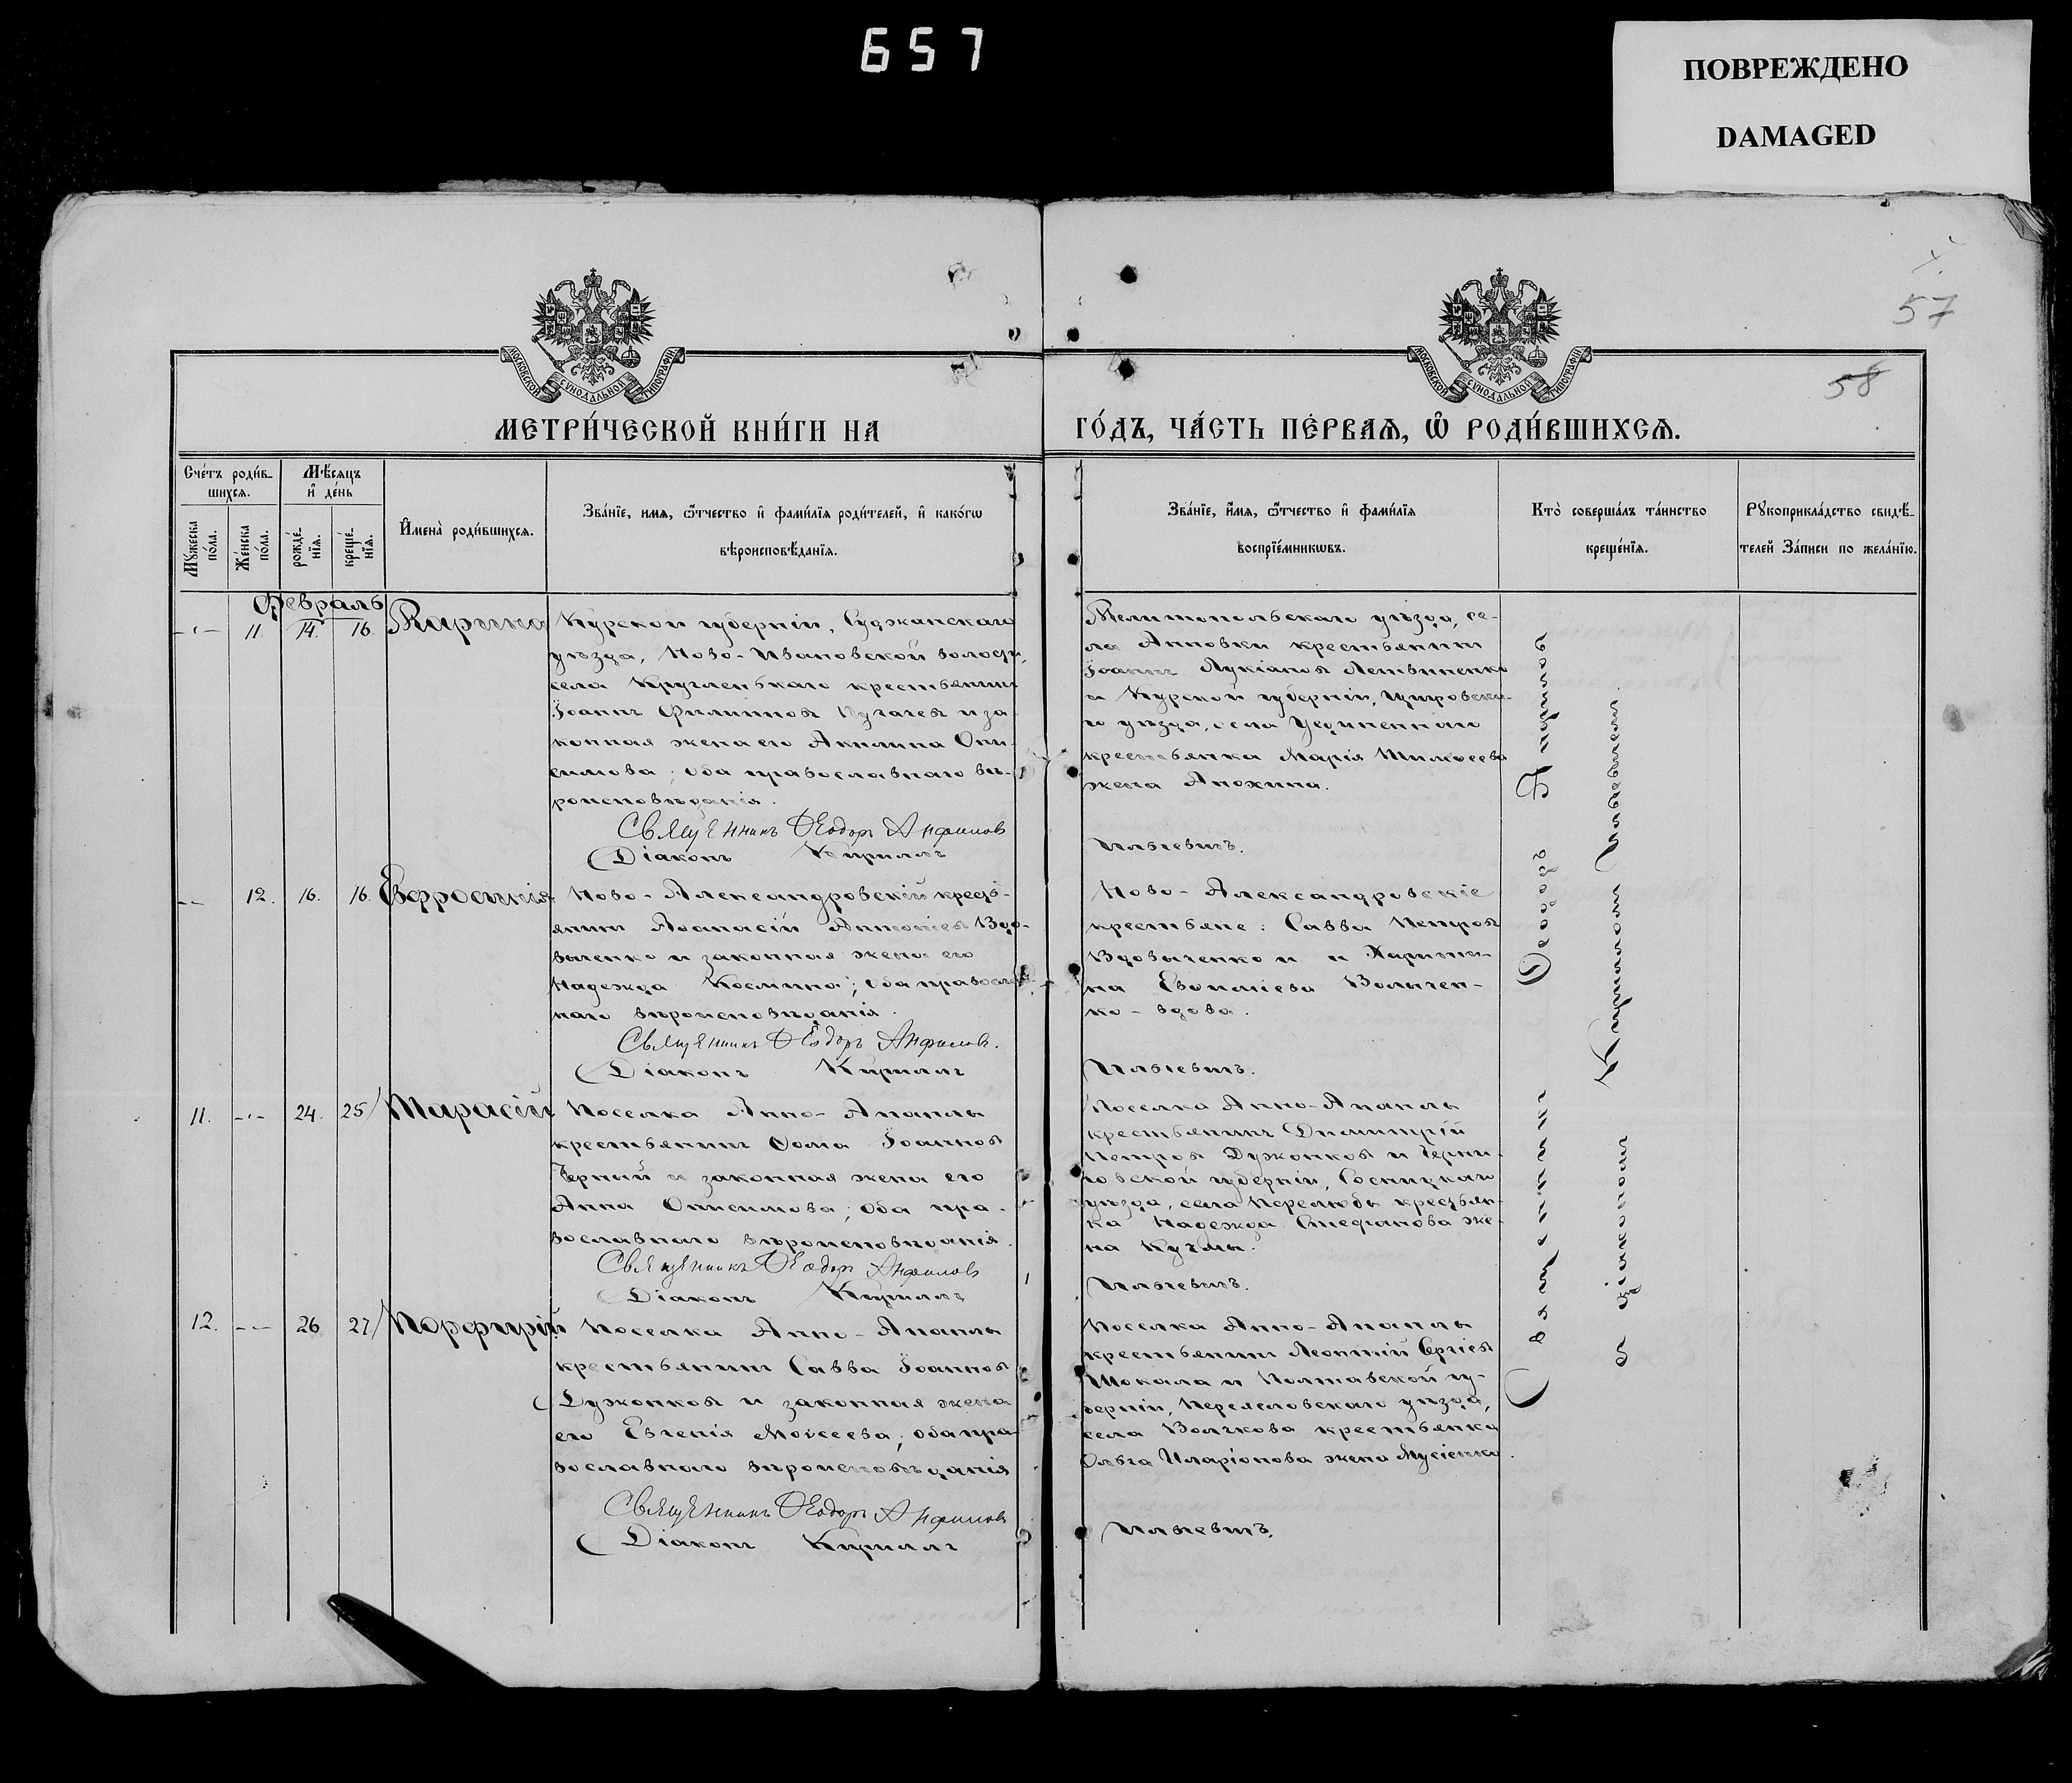 657
ПОВРЕЖДЕНО
DAMAGED
57
58
МОСКОВСКОЙ СУНОДАЛЬНОЙ ТИПОГРАФІИ
МОСКОВСКОЙ СУНОДАЛЬНОЙ ТИПОГРАФІИ
МЕТРИ́ЧЕСКОЙ КНИ́ГИ НА
ГО́ДЪ, ЧА́СТЬ ПЕ́РВАѦ, Ѡ҆ РОДИ́ВШИХСѦ.
Сче́тъ роди́в-
шихсѧ.
Мꙋ́жеска по́ла.
Же́нска по́ла.
Мѣ́сѧцъ
и҆ де́нь
рожде́-
нїѧ.
креще́-
нїѧ.
И҆мена̀ роди́вшихсѧ.
Зва́нїе, имѧ, ѻ҆́тчество и҆ фами́лїѧ роди́телей, и҆ како́гѡ
вѣроисповѣ́данїѧ.
Зва́нїе, и҆́мѧ, ѻ҆́тчество и҆ фами́лїѧ
воспрїе́мникѡвъ.
Кто̀ соверша́лъ та́инство
креще́нїѧ.
Рꙋкоприкла́дство свидѣ́-
телей За́писи по жела́нїю.
Февраль
-"- 11. 14. 16. Карина
Курской губерніи, Суджанскаго
уѣзда, Ново-Ивановской волости,
села Кругленькаго крестьянинъ
Іоаннъ Филиповъ Пугачевъ и за-
конная жена его Акилина Они-
симова; оба православнаго вѣ-
роисповѣданія.
Священникъ Ѳеодоръ Анфиловъ
Діаконъ Кириллъ
Мелитопольскаго уѣзда, се-
ла Анновки крестьянинъ
Іоаннъ Лукіановъ Летвиненко
и Курской губерніи, Щигровска-
го уѣзда, села Уединеннаго
крестьянка Марія Тимоѳеева
жена Анохина.
Ильяевичъ.
-- 12. 16. 16. Евфросинія
Ново-Александровскій кресть-
янинъ Аѳанасій Антоніевъ Вдо-
выченко и законная жена его
Надежда Косьмина; оба православ-
наго вѣроисповѣданія.
Священникъ Ѳеодоръ Анфиловъ.
Діаконъ Кириллъ
Ново-Александровскіе
крестьяне: Савва Петровъ
Вдовыченко и и Харити-
на Евѳиміева Волычен-
ко - вдова.
Ильяевичъ.
11. -"- 24. 25 Тарасій
Поселка Анно-Апанлы
крестьянинъ Ѳома Іоанновъ
Черный и законная жена его
Анна Онисимова; оба пра-
вославнаго вѣроисповѣданія.
Священникъ Ѳеодоръ Анфиловъ
Діаконъ Кириллъ
Поселка Анно-Апанлы
крестьянинъ Димитрій
Петровъ Дужонковъ и Черни-
говской губерніи, Сосницкаго
уѣзда, села Перелюбы крестьян-
ка Надежда Стефанова же-
на Кугмы.
Ильяевичъ.
12. -"- 26 27 Порфирій
Поселка Анно-Апанлы
крестьянинъ Савва Іоанновъ
Дужонковъ и законная жена
его Евгенія Моисеева; оба пра-
вославнаго вѣроисповѣданія
Священникъ Ѳеодоръ Анфиловъ
Діаконъ Кириллъ
Поселка Анно-Апанлы
крестьянинъ Леонтій Сергіевъ
Шокала и Полтавской гу-
берніи, Переясловскаго уѣзда,
села Волчкова крестьянка
Ольга Иларіонова жена Мусіенко.
Ильяевичъ.
Священникъ Ѳеодоръ Анфиловъ
съ діакономъ Кирилломъ Ильяевичемъ